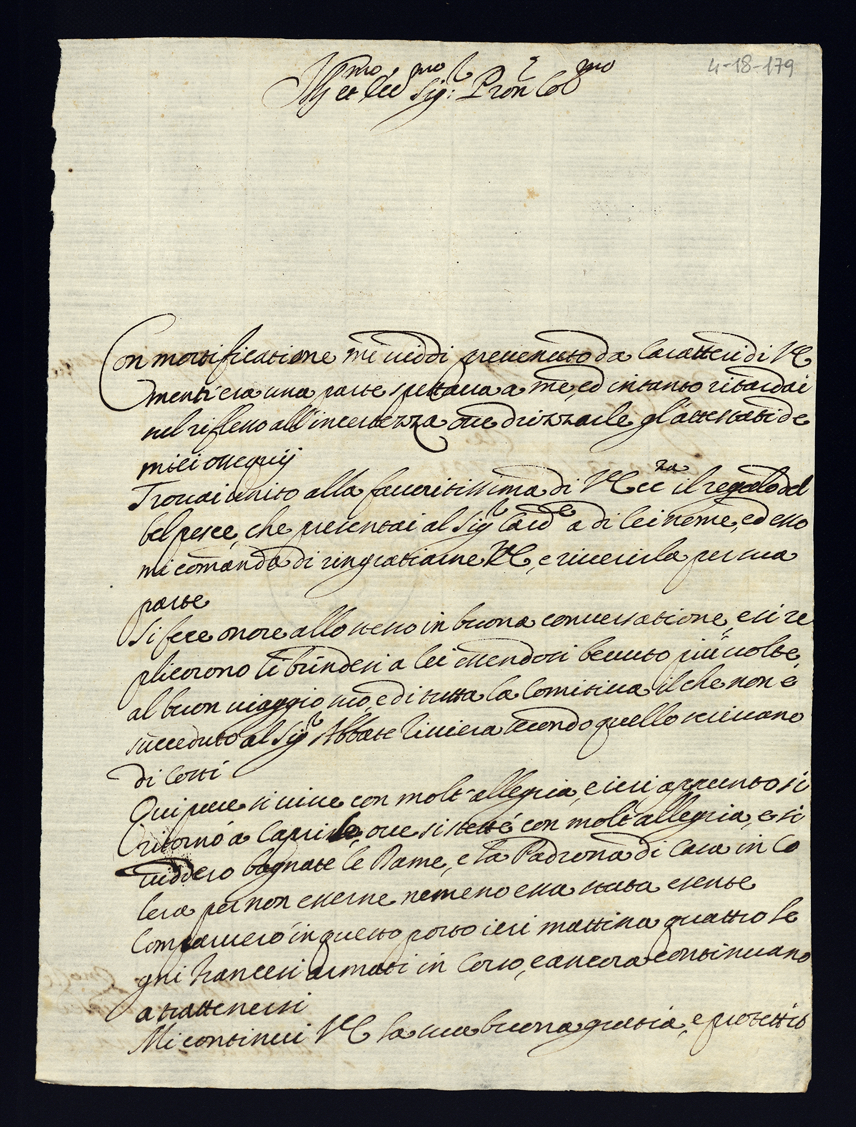 4-18-179
Ill.mo et Ecc.mo Sig.r Pron Col.mo
Con mortificatione mi viddi prevenuto da Caratteri di V E
mentr'era una parte spettava a me, ed intanto ritardai
nel riflesso all'incertezza ove drizzarle gl'attestati de
miei ossequij
Trovai unito alla favoritissima di V Ecc.za il regalo del
bel pesce, che presentai al Sig.r Card.e a di lei nome, ed esso
mi comanda di ringratiarne V E, e riverirla per sua
parte
Si fece onore allo stesso in buona conversatione, e si re
plicorono li brindesi a lei essendosi bevuto più volte
al buon viaggio suo, e di tutta la Comitiva, il che non è
succeduto al Sig.r Abbate Riviera secondo quello scrivano
di Corti
Qui pure si vive con molt'allegria, e ieri appunto si
ritornò a Caprile, ove si stette con molt'allegria, e si
viddero bagnate le Dame, e la Padrona di Casa in Co
lera per non esserne nemeno essa stata esente
Comparvero in questo porto ieri mattina quattro Le
gni francesi armati in Corso, e ancora continuano
a trattenersi
Mi continui V E la sua buona gratia, e protett